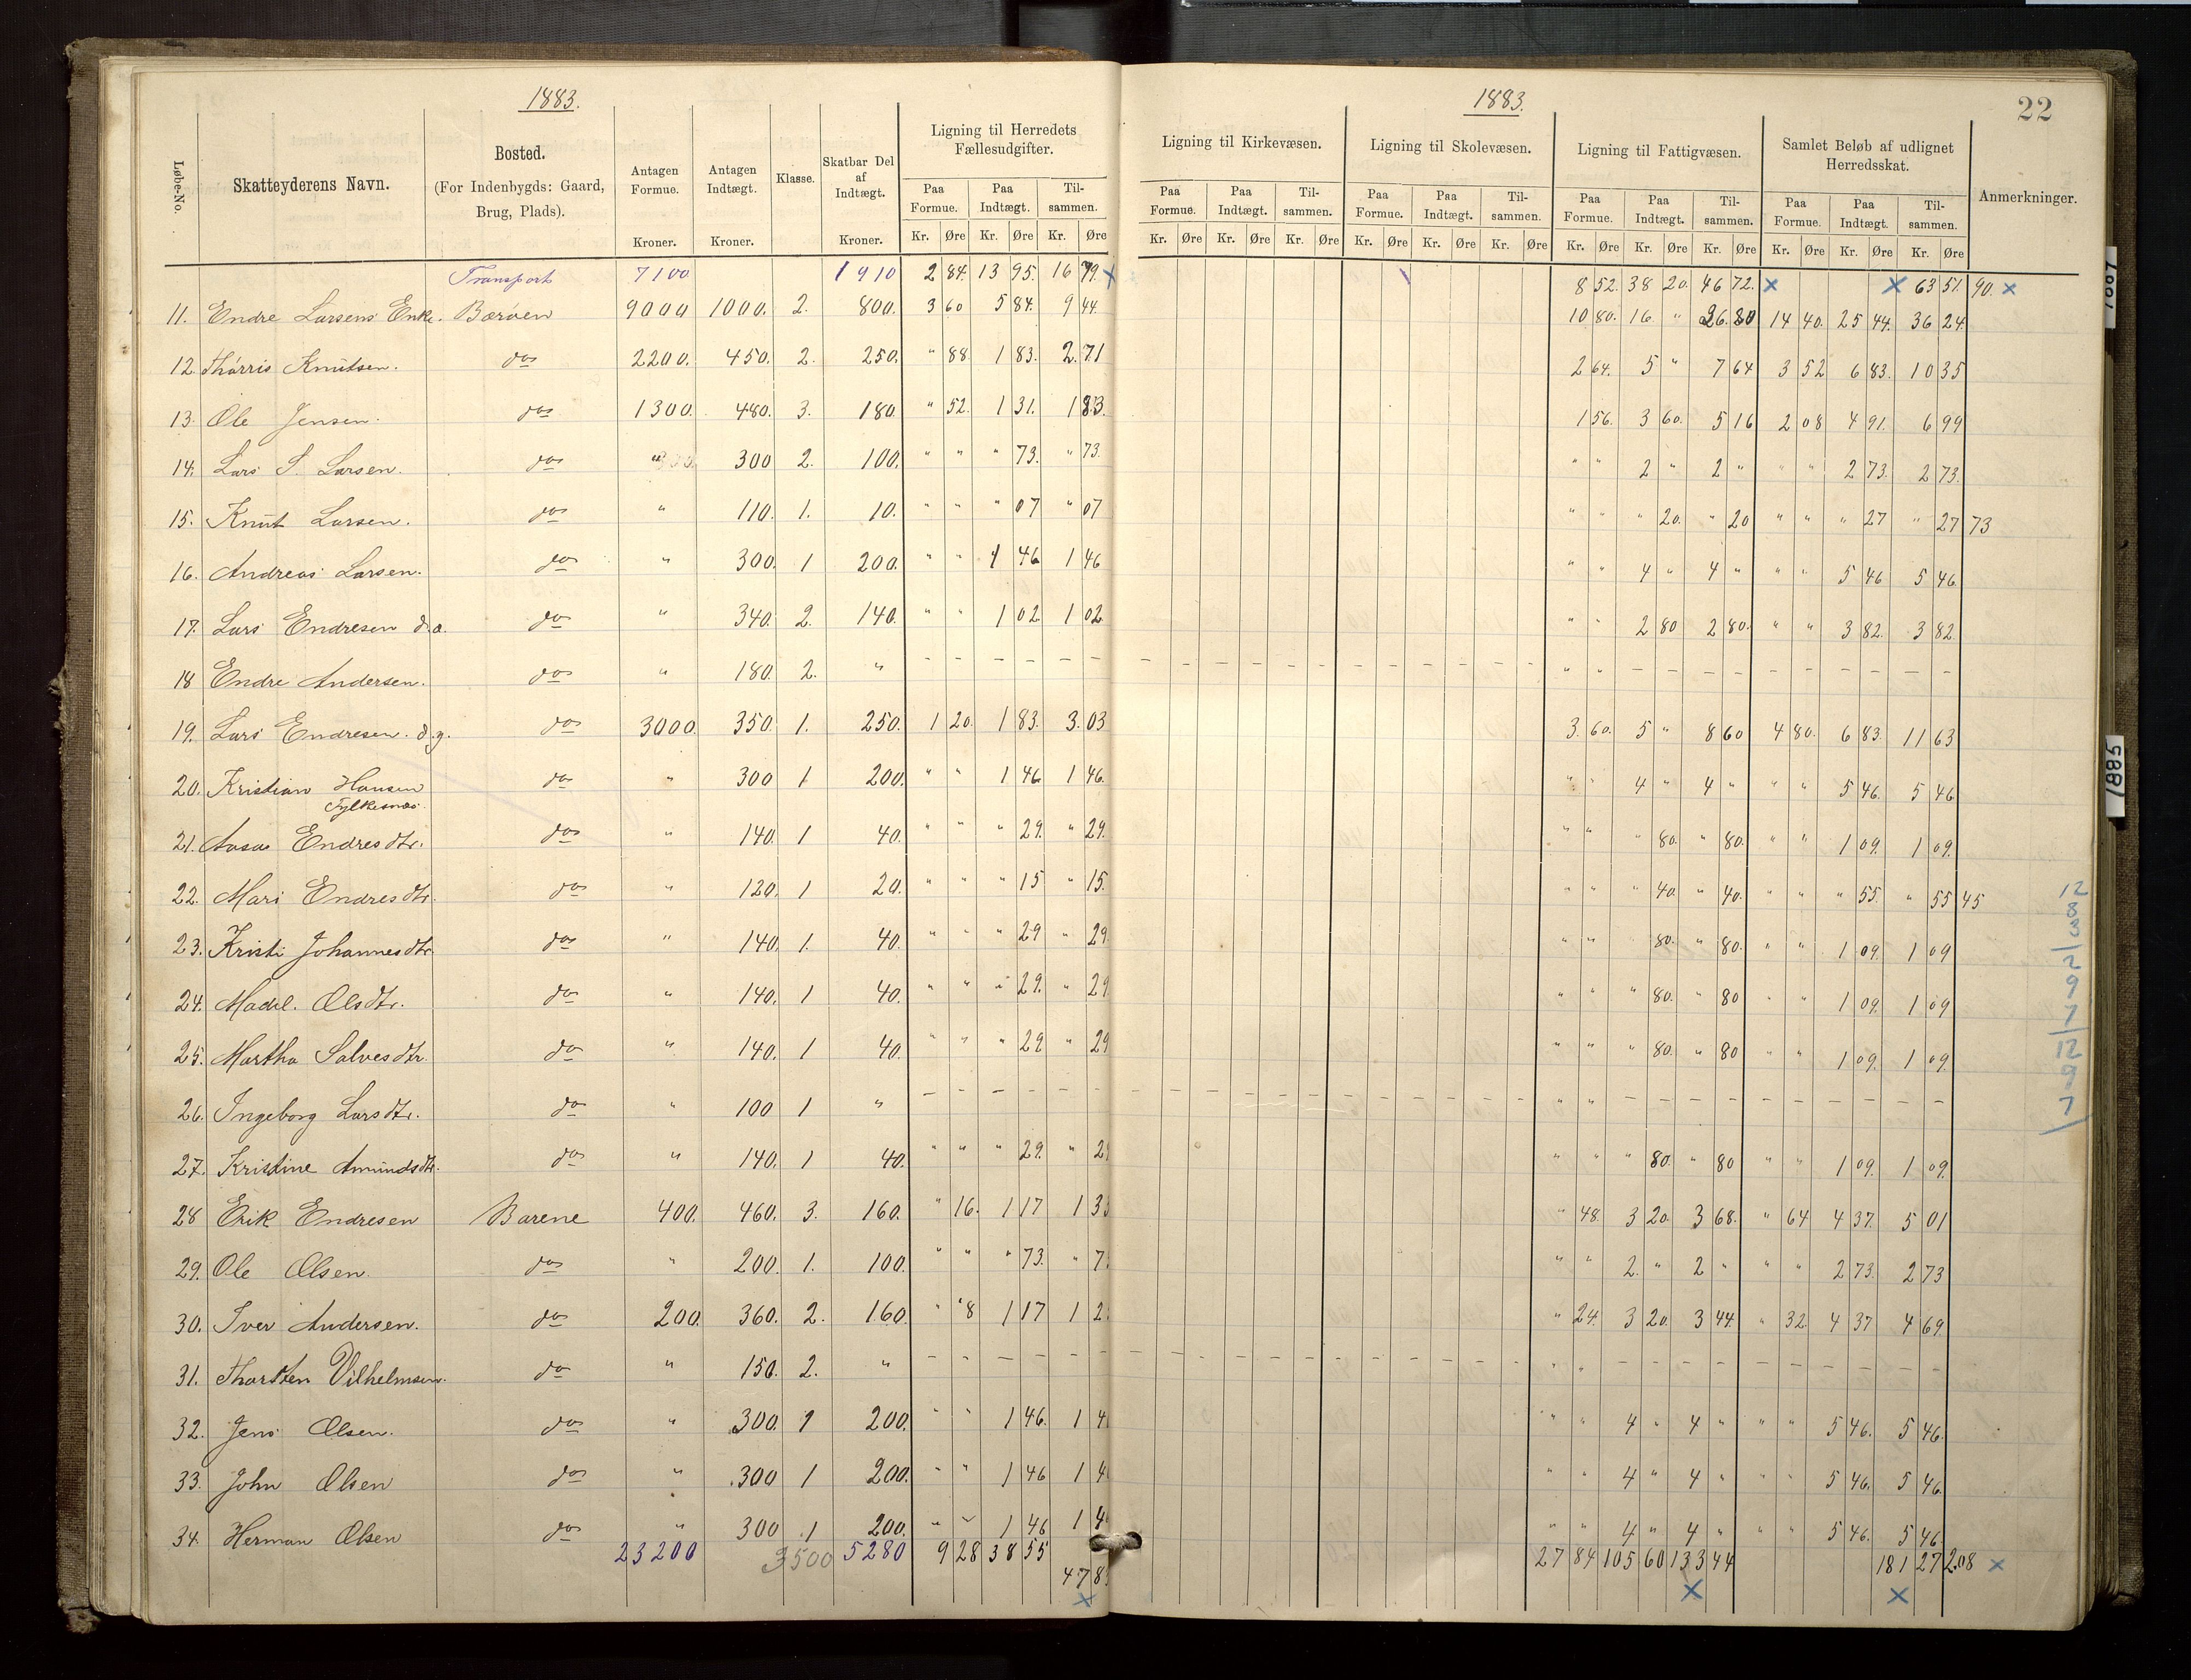 1883.
1883.
22
Løbe-No.
Skatteyderens Navn.
Bosted. (For Indenbygds: Gaard, Brug, Plads).
Antagen Formue. Kroner.
Antagen Indtægt. Kroner.
Klasse.
Skatbar Del af Indtægt. Kroner.
Ligning til Herredets Fællesudgifter.
Ligning til Kirkevæsen.
Ligning til Skolevæsen.
Ligning til Fattigvæsen.
Samlet Beløb af udlignet Herredsskat.
Anmerkninger.
Paa Formue. Paa Indtægt. Tilsammen. Paa Formue. Paa Indtægt. Tilsammen. Paa Formue. Paa Indtægt. Tilsammen. Paa Formue. Paa Indtægt. Tilsammen. Paa Formue. Paa Indtægt. Tilsammen.
Kr. Øre Kr. Øre Kr. Øre Kr. Øre Kr. Øre Kr. Øre Kr. Øre Kr. Øre Kr. Øre Kr. Øre Kr. Øre Kr. Øre Kr. Øre Kr. Øre Kr. Øre
Transport 7100 1910 2 84. 13 95. 16 79. x 8 52. 38 20. 46 72. x x 63 51. 90. x
11. Endre Larsens Enke. Barøen 9000 1000. 2. 800. 3 60 5 84. 9 44. 10 80. 16 " 26. 80 14 40. 25 44. 36 24.
12. Thørris Knutsen. do 2200. 450. 2. 250. " 88. 1 83. 2. 71 2 64. 5 " 7 64 3 52 6 83. 10 35
13. Ole Jensen. do 1300. 480. 3. 180. " 52. 1 31. 1 83. 1 56. 3 60. 5 16 2 08 4 91. 6 99
14. Lars S. Larsen. do " 300 2. 100. " " " 73. " 73. " " 2 " 2 " " " 2 73. 2 73.
15. Knut Larsen. do " 110. 1. 10. " " " 07 " 07 " " " 20. " 20 " " " 27 " 27 73
16. Andreas Larsen. do " 300. 1 200. " " 1 46 1 46 " " 4 " 4 " " " 5 46 5 46.
17. Lars Endresen d.æ. do " 340. 2. 140. " " 1 02 1 02 " " 2 80 2 80. " " 3 82. 3 82.
18 Endre Andersen. do " 180. 2. " – – – – – – – – – – – – – – – – – – " " – – – – – – – – – –
19. Lars Endresen. d.y. do 3000. 350. 1. 250. 1 20. 1 83. 3. 03 3. 60. 5 " 8 60 4 80. 6 83. 11 63
20. Kristian Hansen do " 300 1 200. " " 1 46 1 46. " " 4 " 4 " " " 5 46. 5 46
Fylkesnæs.
21. Aasa Endresdtr. do " 140. 1 40. " " " 29. " 29. " " " 80. " 80. " " 1 09. 1 09.
22. Mari Endresdtr. do " 120. 1 20. " " " 15 " 15. " " " 40. " 40. " " " 55. " 55 45
23. Kristi Johannesdtr. do " 140. 1. 40. " " " 29 " 29. " " 80. " 80. " " 1 09. 1 09
24. Madel. Olsdtr. do " 140. 1 40. " " " 29. " 29 " " " 80. " 80 " " 1 09. 1 09
25. Martha Salvesdtr. do " 140. 1 40. " " " 29 " 29 " " " 80. " 80 " " 1 09. 1 09.
26. Ingeborg Larsdtr. do " 100 1 " – – – – – – – – – – – – – – – – – – " " – – – – – – – – – –
27. Kristine Amundsdtr. do " 140. 1 40. " " " 29. " 2 " " " 80. " 80 " " 1 09. 1 09.
28 Erik Endresen Barene 400. 460. 3. 160. " 16. 1 17 1 3 " 48. 3 20. 3 68. " 64 4 37. 5 01
29. Ole Olsen. do " 200. 1. 100. " " " 73. " 7 " " 2. " 2 " " " 2 73. 2 73
30. Iver Andersen. do 200. 360. 2. 160. " 8 1 17 1 2 " 24. 3 20. 3 44. " 32 4 37 4 69.
31. Thorsten Vilhelmsen. do " 150. 2. " – – – – – – – – – – – – – – – – – – " " – – – – – – – – – –
32. Jens Olsen. do " 300. 1 200. " " 1 46. 1 4 " " 4 " 4 " " " 5 46. 5 46.
33. John Olsen do " 300 1 200. " " 1 46 1 4 " " 4 " 4 " " " 5 46. 5 46.
34. Herman Olsen do " 300 1 200. " " 1 46 1 4 " " 4 " 4 " " " 5 46. 5 46.
23200 3500 5280 9 28 38 55 27 84 105 60 133 44 181 27 2.08 x
47 8
x x x
1885